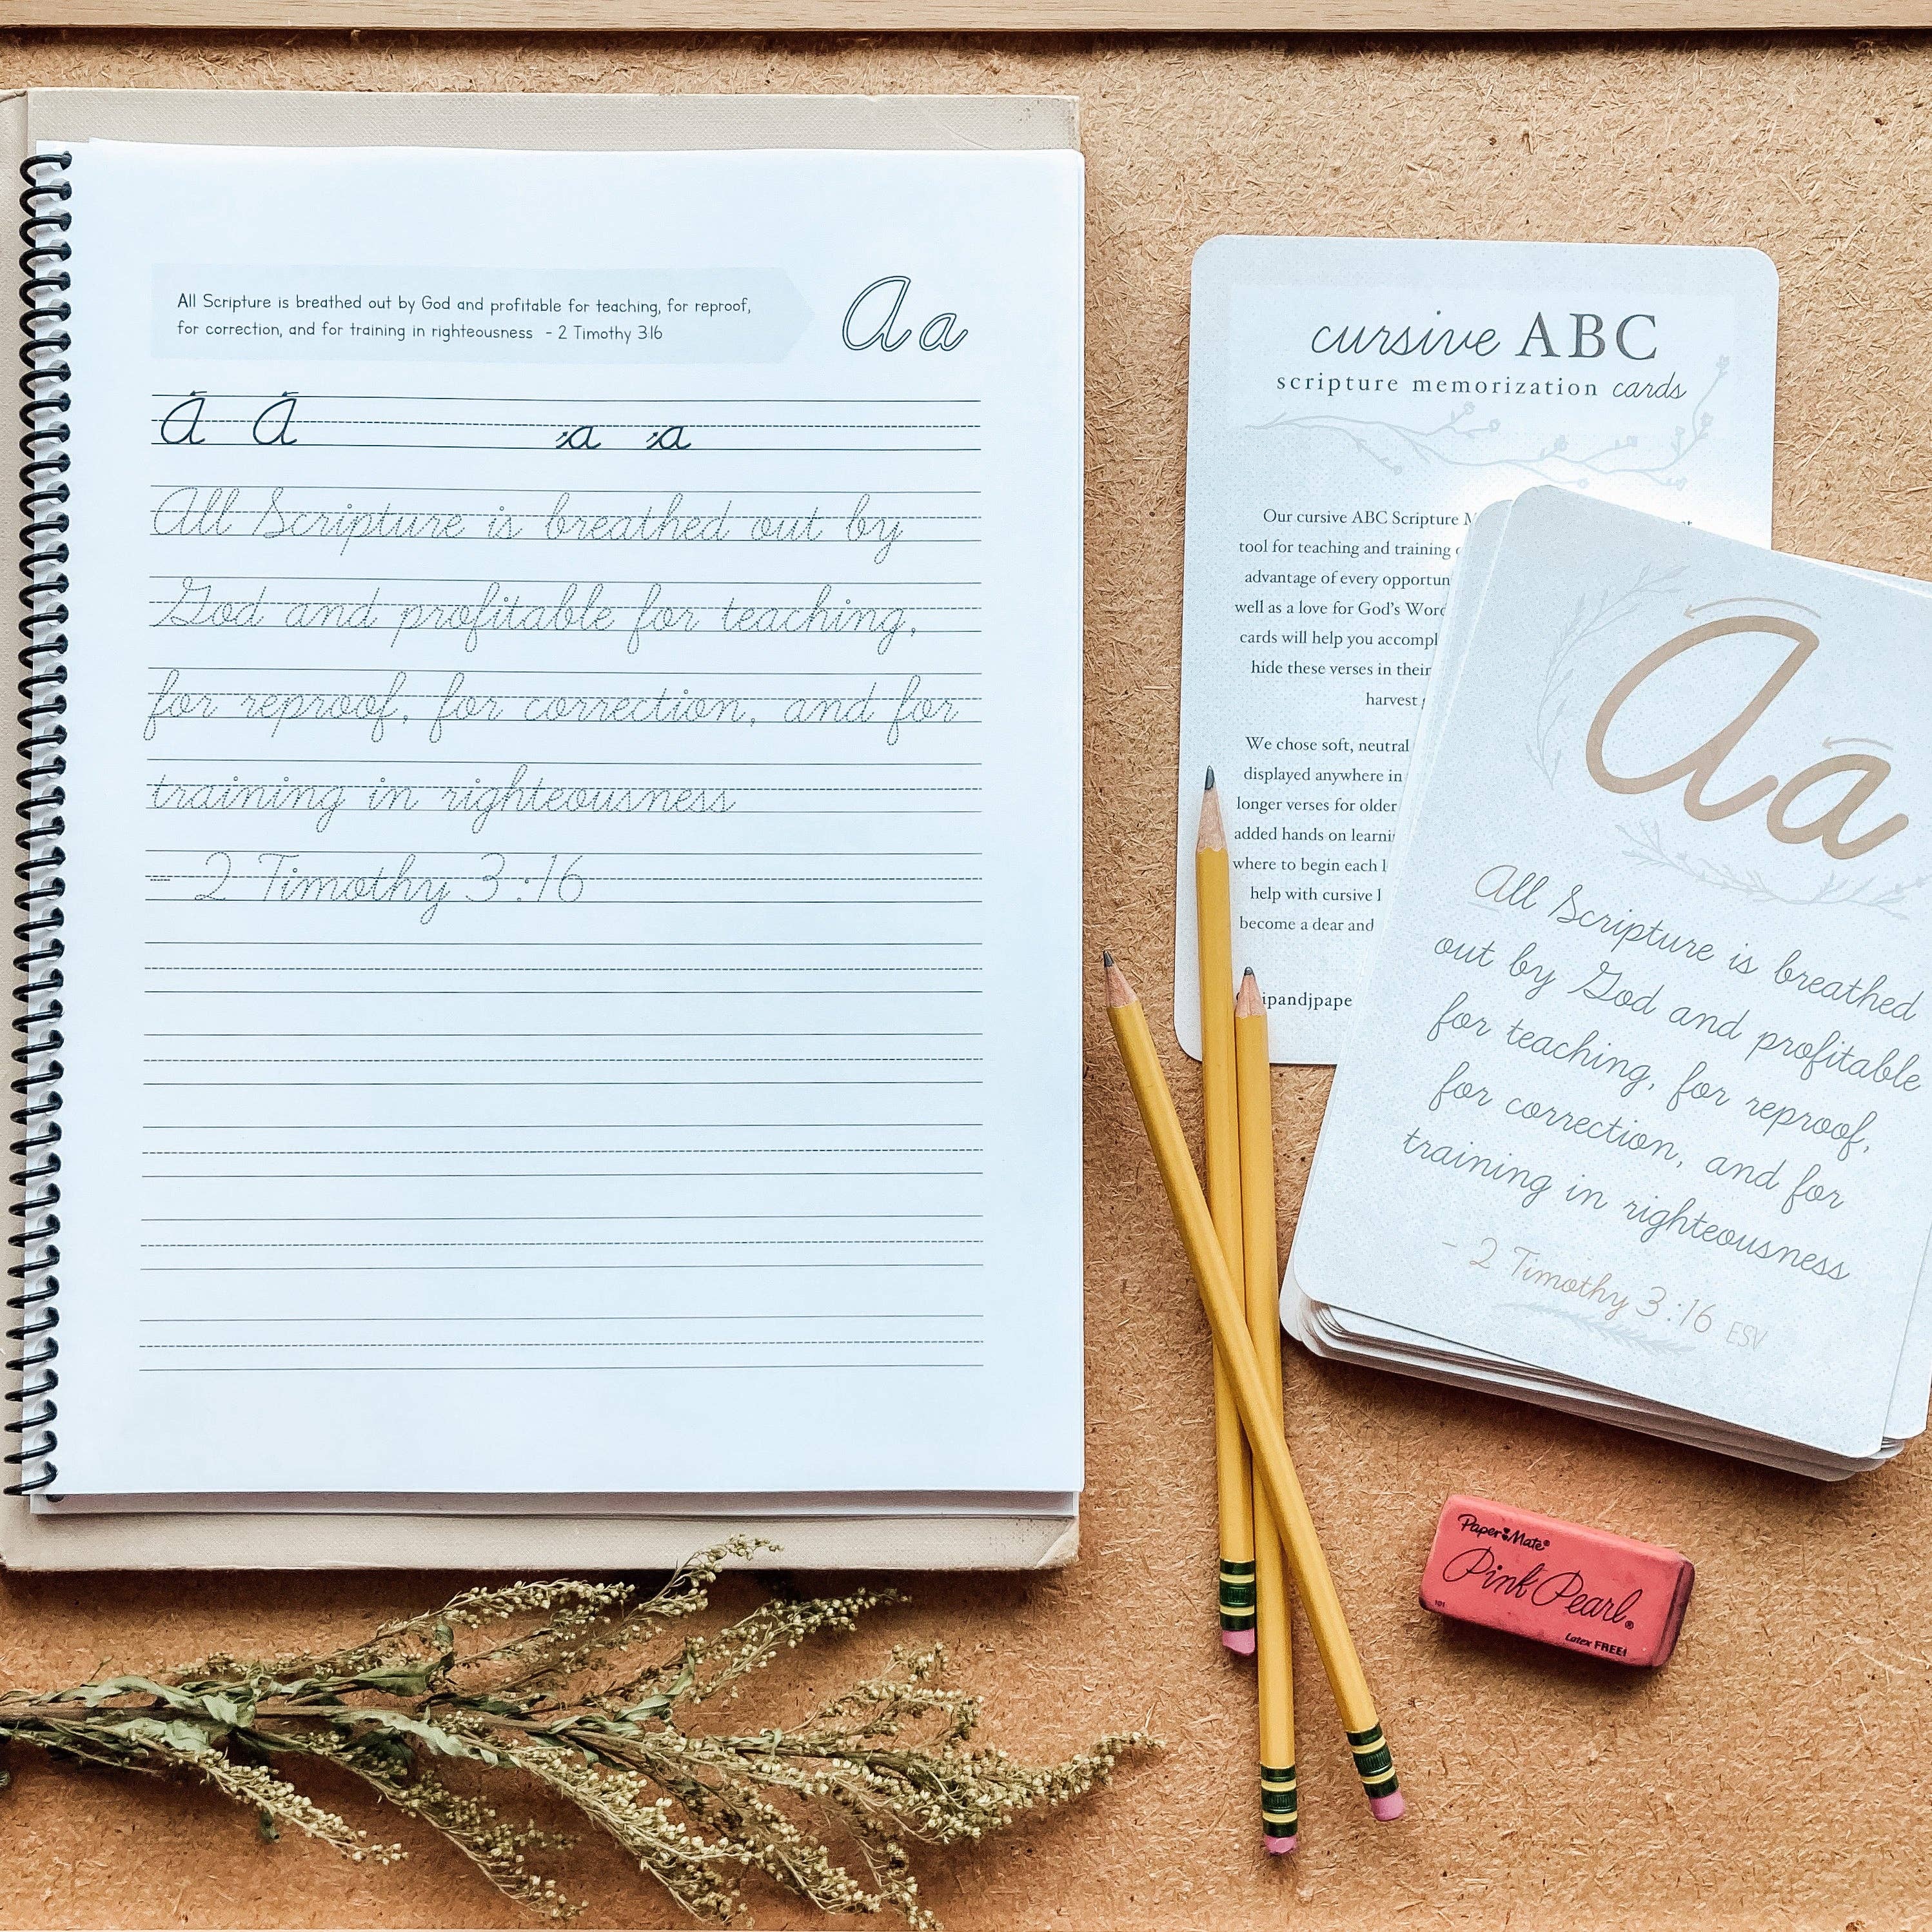 All Scripture is breathed out by God and profitable for teaching, for reproof,
for correction, and for training in righteousness - 2 Timothy 3:16
A a
A A a a
All Scripture is breathed out by
God and profitable for teaching,
for reproof, for correction, and for
training in righteousness
- 2 Timothy 3:16
cursive ABC
scripture memorization cards
Our cursive ABC Scripture
tool for teaching and training
advantage of every
well as a love for God's
cards will help you
hide these verses in their
harvest
We chose soft, neutral
displayed anywhere in
longer verses for older
added hands on
where to begin each
help with cursive
become a dear and
A a
All Scripture is breathed
out by God and profitable
for teaching, for reproof,
for correction, and for
training in righteousness
- 2 Timothy 3:16 ESV
Paper Mate®
Pink Pearl®
101
Latex FREE!